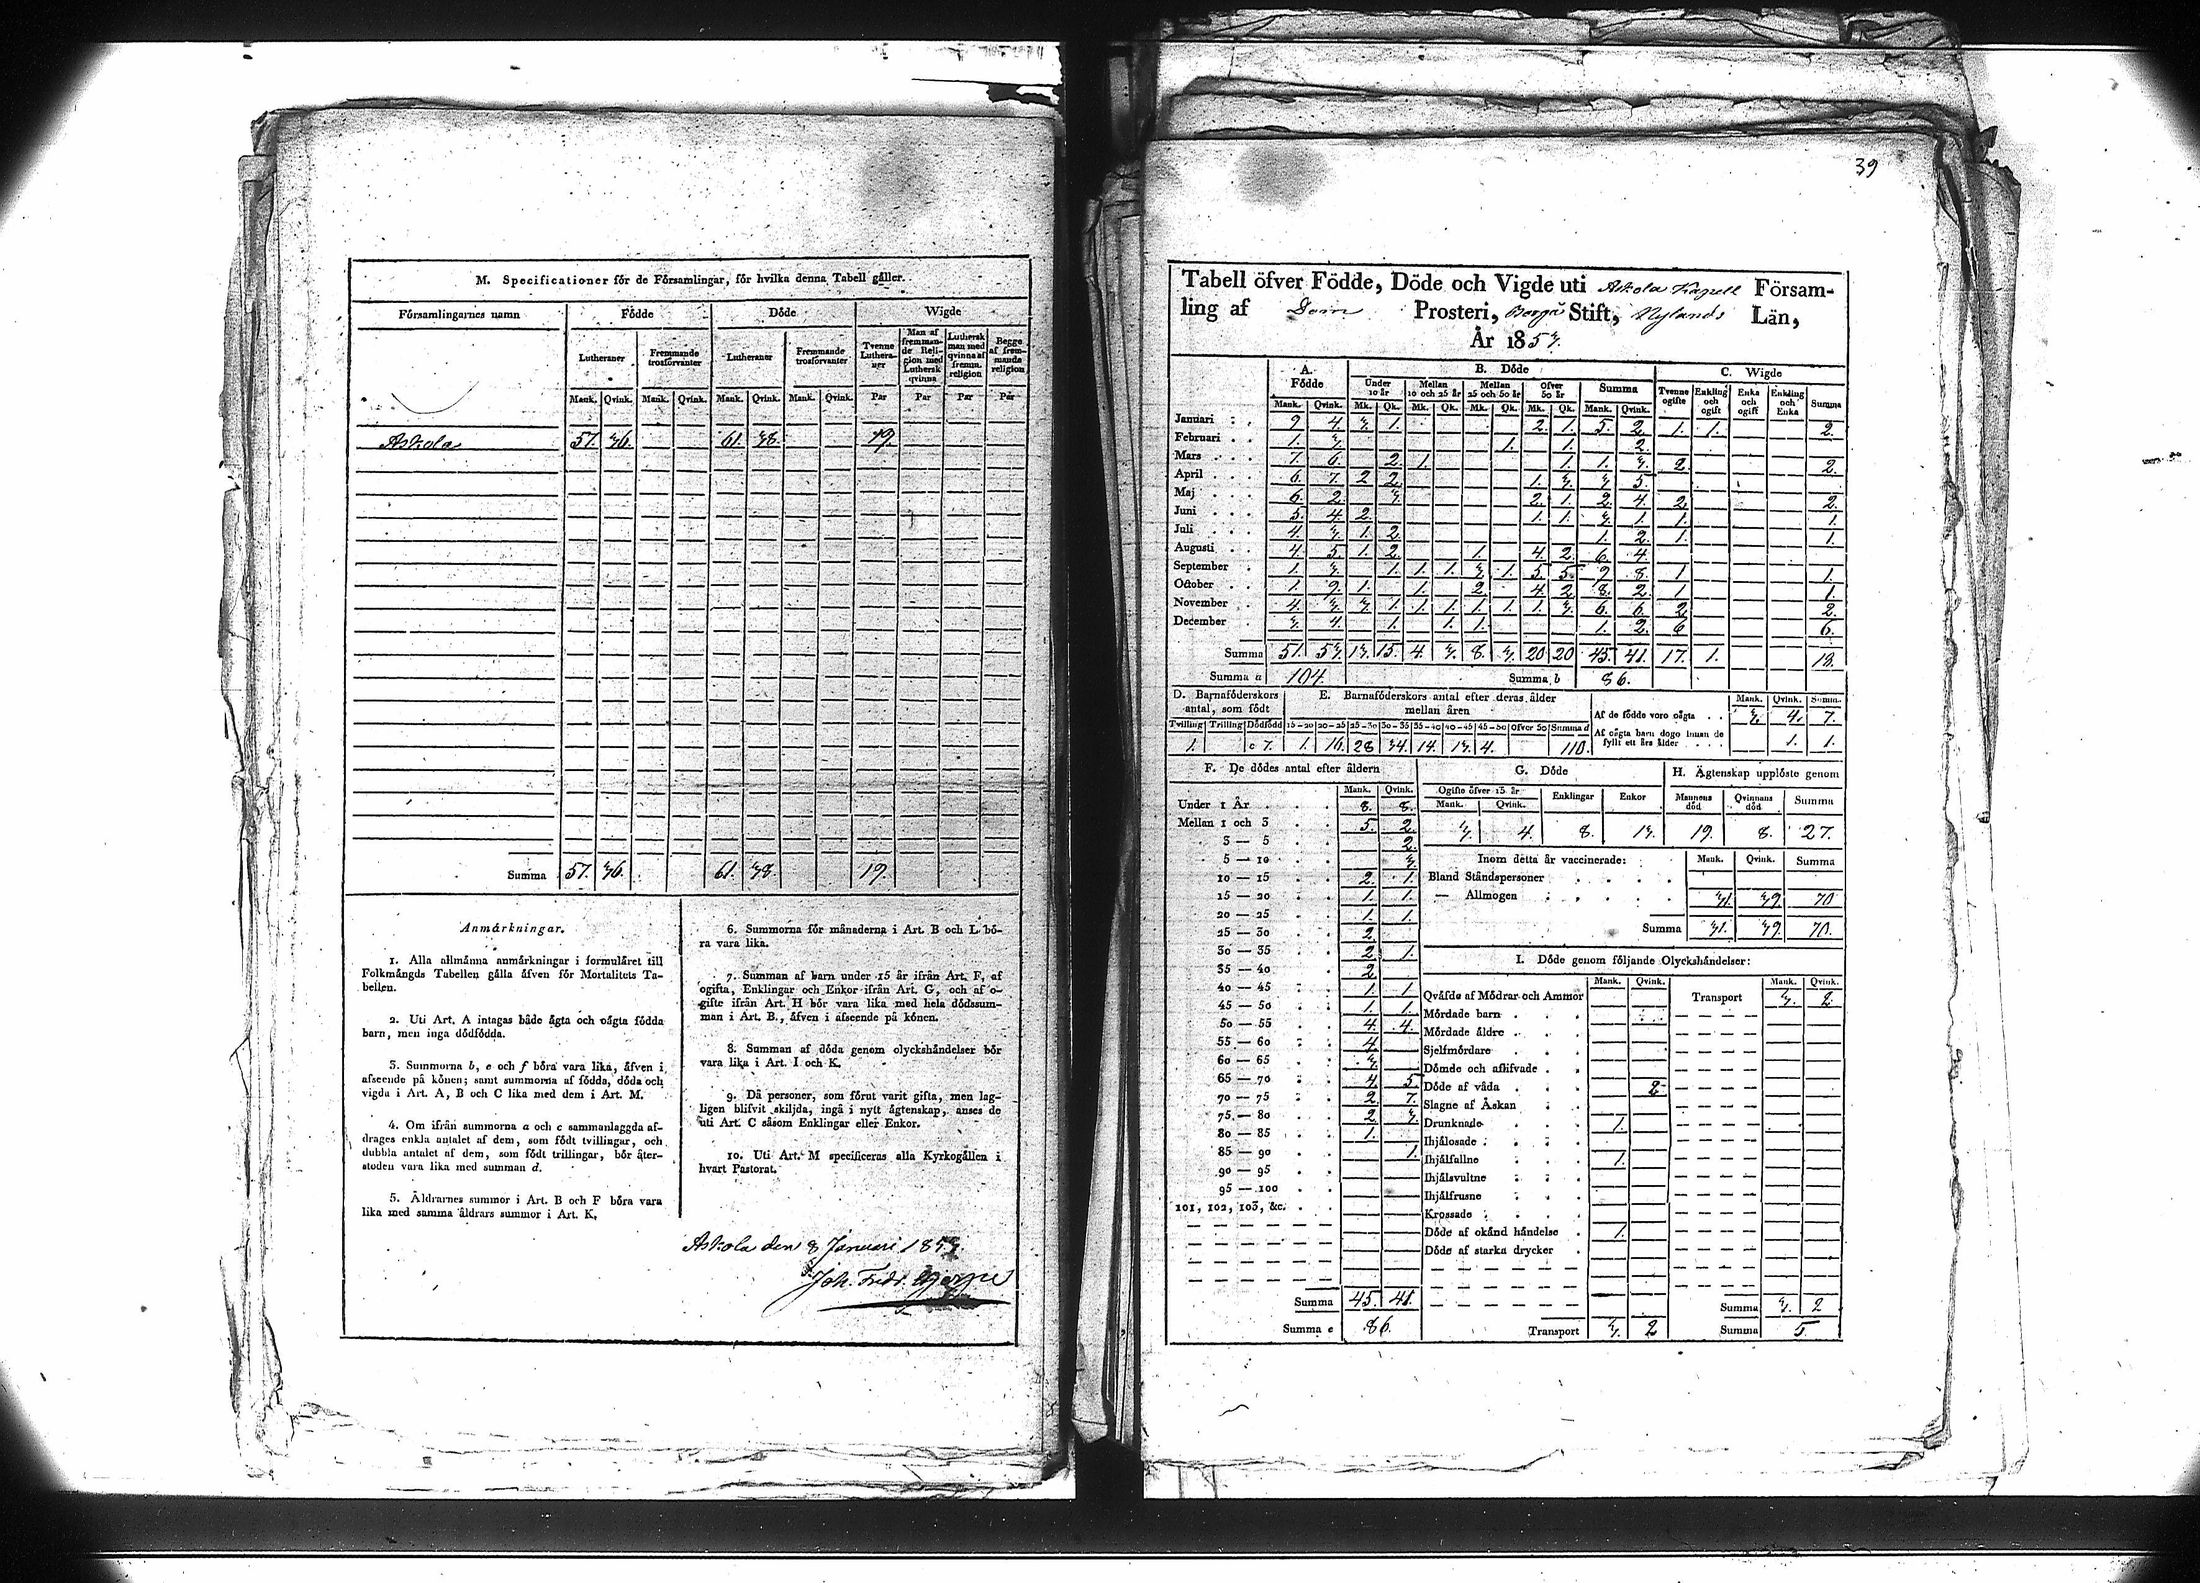 M. Specificationer för de Församlingar, för hvilka denna Tabell gäller.
Församlingarnes namn Födde Döde Wigde
Lutheraner Fremmande trosförvanter Lutheraner Fremmande trosförvanter Tvenne Lutheraner Man af fremmande Religion med Luthersk qvinna Luthersk man med qvinna af fremm. religion Begge af fremmande religion
Mank. Qvink. Mank. Qvink. Mank. Qvink. Mank. Qvink. Par Par Par Par
Askola 57. 36. 61. 38. 19.
Summa 57. 36. 61. 38. 19.
Anmärkningar.
1. Alla allmänna anmärkningar i formuläret till
Folkmängds Tabellen gälla äfven för Mortalitets Ta-
bellen.
2. Uti Art. A intagas både ägta och oägta födda
barn, men inga dödfödda.
3. Summorna b, e och f böra vara lika, äfven i
afseende på könen; samt summorna af födda, döda och
vigda i Art. A, B och C lika med dem i Art. M.
4. Om ifrån summorna a och c sammanlaggda af-
drages enkla antalet af dem, som födt tvillingar, och
dubbla antalet af dem, som födt trillingar, bör åter-
stoden vara lika med summan d.
5. Åldrarnes summor i Art. B och F böra vara
lika med samma åldrars summor i Art. K.
6. Summorna för månaderna i Art. B och L bö-
ra vara lika.
7. Summan af barn under 15 år ifrån Art. F, af
ogifta, Enklingar och Enkor ifrån Art. G, och af o-
gifte ifrån Art. H bör vara lika med hela dödssum-
man i Art. B., äfven i afseende på könen.
8. Summan af döda genom olyckshändelser bör
vara lika i Art. I och K.
9. Då personer, som förut varit gifta, men lag-
ligen blifvit skiljda, ingå i nytt ägtenskap, anses de
uti Art. C såsom Enklingar eller Enkor.
10. Uti Art. M specificeras alla Kyrkogällen i
hvart Pastorat.
Askola den 8 Januari 1853.
Joh. Fredr.
39
Tabell öfver Födde, Döde och Vigde uti Askola Kapell Försam-
ling af Prosteri, Borgå Stift, Nylands Län,
År 1853.
A. Födde B. Döde C. Wigde
Under 10 år Mellan 10 och 25 år Mellan 25 och 50 år Öfver 50 år Summa Tvenne ogifte Enkling och ogift Enka och ogift Enkling och Enka Summa
Mank. Qvink. Mk. Qk. Mk. Qk. Mk. Qk. Mk. Qk. Mank. Qvink.
Januari 9 4. 3. 1. 2. 1. 5. 2. 1. 1. 2.
Februari 1. 3. 1. 1. 2.
Mars 7. 6. 2. 1. 1. 1. 3. 2. 2.
April 6. 7. 2 2. 1. 3. 3. 5.
Maj 6. 2. 3. 2. 1. 2. 4. 2. 2.
Juni 5. 4. 2. 1. 1. 3. 1. 1. 1.
Juli 4. 3. 1. 2. 1. 2. 1. 1.
Augusti 4. 5. 1. 2. 1. 4. 2. 6. 4.
September 1. 3. 1. 1. 1. 3. 1. 5. 5. 9. 8. 1 1.
October 1. 9. 1. 1. 2. 4. 2 8. 2. 1 1.
November 4. 3. 3. 1. 1. 1. 1. 1. 1. 3. 6. 6. 2 2.
December 3. 4. 1. 1. 1. 1. 2. 6 6.
Summa 51. 53. 13. 15. 4. 3. 8. 3. 20 20 45. 41. 17. 1. 18.
Summa a 104. Summa b 86.
D. Barnaföderskors antal, som födt
E. Barnaföderskors antal efter deras ålder mellan åren
Mank. Qvink. Summa
Tvilling Trilling Dödfödd 15-20 20-25 25-30 30-35 35-40 40-45 45-50 öfver 50 Summa d
1. c 7. 1. 16. 28 34. 14. 13. 4. 110.
Af de födde voro oägta 3. 4. 7.
Af oägta barn dogo innan de
fyllt ett års ålder 1. 1.
F. De dödes antal efter åldern
Mank. Qvink.
Under 1 År 8. 8.
Mellan 1 och 3 5. 2.
3 — 5 2.
5 — 10 3.
10 — 15 2. 1.
15 — 20 1. 1.
20 — 25 1. 1
25 — 30 2.
30 — 35 2. 1.
35 — 40 2.
40 — 45 1. 1
45 — 50 1. 1.
50 — 55 4. 4.
55 — 60 4.
60 — 65 3.
65 — 70 4. 5.
70 — 75 2. 7.
75 — 80 2. 3.
80 — 85 1.
85 — 90 1.
90 — 95
95 — 100
101, 102, 103, &c.
Summa 45. 41.
Summa e 86.
G. Döde
Ogifte öfver 15 år Enklingar Enkor
Mank. Qvink.
3. 4. 8. 13.
H. Ägtenskap upplöste genom
Mannens död Qvinnans död Summa
19. 8. 27.
Inom detta år vaccinerade: Mank. Qvink. Summa
Bland Ståndspersoner
— Allmogen 31. 39 70
Summa 31. 39. 70.
I. Döde genom följande Olyckshändelser:
Mank. Qvink. Mank. Qvink.
Qväfde af Mödrar och Ammor Transport 3. 2
Mördade barn
Mördade äldre
Sjelfmördare
Dömde och aflifvade
Döde af våda 2
Slagne af Åskan
Drunknade 1.
Ihjälosade
Ihjälfallne 1.
Ihjälsvultne
Ihjälfrusne
Krossade
Döde af okänd händelse 1.
Döde af starka drycker
Summa 3. 2
Transport 3. 2 Summa 5.